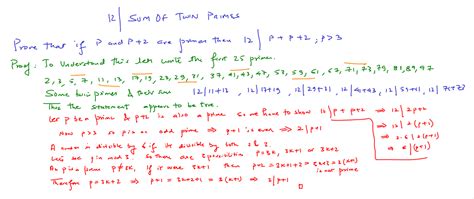 12 | SUM OF TWIN PRIMES
Prove that if P and P+2 are primes then 12 | P + P+2 ; P>3
Proof: To Understand this lets write the first 25 primes.
2, 3, 5, 7, 11, 13, 17, 19, 23, 29, 31, 37, 41, 43, 47, 53, 59, 61, 67, 71, 73, 79, 83, 89, 97
Some twin primes & their sum 12 | 11+13 , 12 | 17+19 , 12 | 29+31 , 12 | 41+43 , 12 | 59+61 , 12 | 71+73
Thus the statement appears to be true.
Let p be a prime & p+2 is also a prime. So we have to show 12 | p + p+2 ⇒ 12 | 2p+2
⇒ 12 | 2(p+1)
Now p>3 so p is an odd prime ⇒ p+1 is even ⇒ 2 | p+1
⇒ 2·6 | 2(p+1)
A number is divisible by 6 if its divisible by both 2 & 3
⇒ 6 | (p+1)
Lets see p in mod 3. So there are 3 possibilities p=3k, 3k+1 or 3k+2
As p is a prime p≠3k, If it were 3k+1 then p+2 = 3k+1+2 = 3k+3 = 3(k+1)
is not prime
Therefore p=3k+2 ⇒ p+1 = 3k+2+1 = 3(k+1) ⇒ 3 | p+1